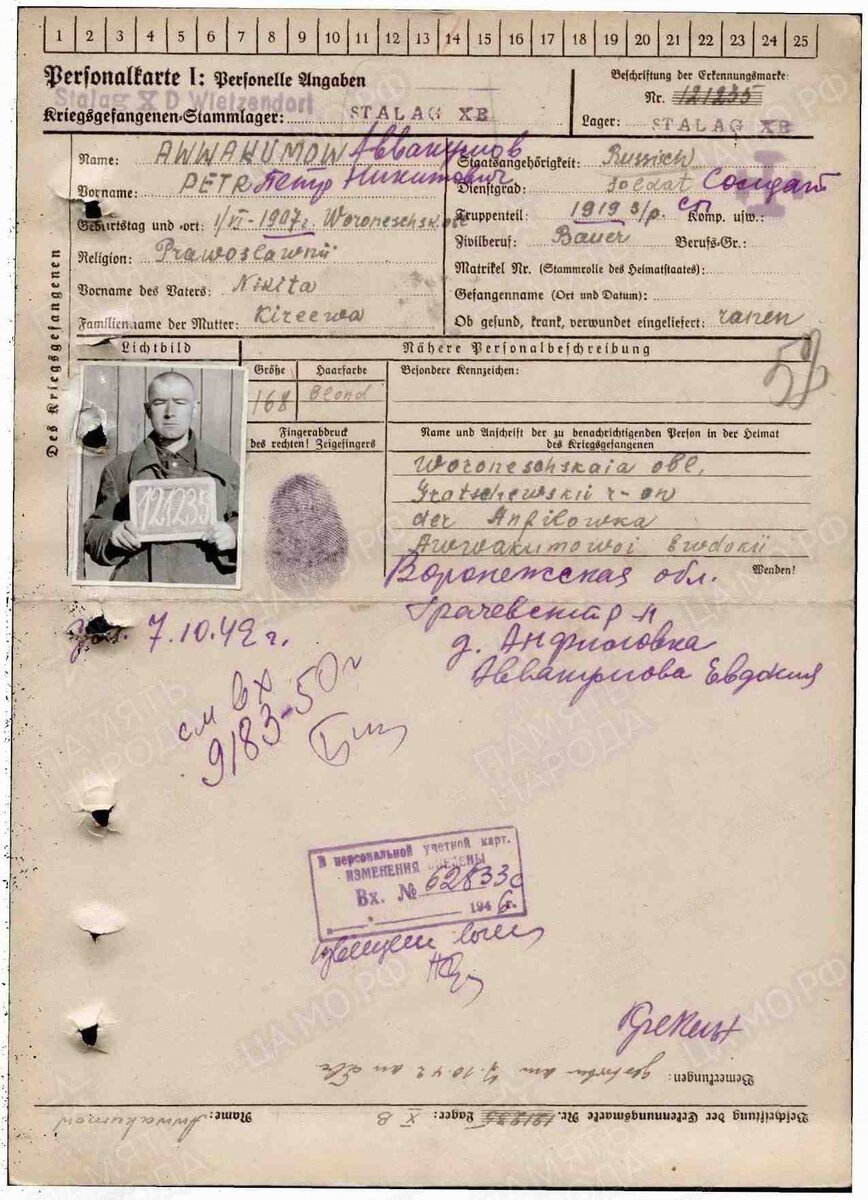 1 2 3 4 5 6 7 8 9 10 11 12 13 14 15 16 17 18 19 20 21 22 23 24 25
Personalkarte I: Personelle Angaben
Stalag X D Wietzendorf
Kriegsgefangenen-Stammlager: STALAG XB
Beschriftung der Erkennungsmarke
Nr. 121235
Lager: STALAG XB
Des Kriegsgefangenen
Name: AWWAKUMOW Аввакумов
Vorname: PETR Петр Никитович
Geburtstag und -ort: 1/VI-1907г. Woroneschsk. obl
Religion: Prawoslawnii
Vorname des Vaters: Nikita
Familienname der Mutter: Kireewa
Staatsangehörigkeit: Russisch
Dienstgrad: Soldat Солдат
Truppenteil: 1919 s/p. сп Komp. usw.:
Zivilberuf: Bauer Berufs-Gr.:
Matrikel Nr. (Stammrolle des Heimatstaates):
Gefangenname (Ort und Datum):
Ob gesund, krank, verwundet eingeliefert: ranen
Lichtbild
Nähere Personalbeschreibung
52
Größe Haarfarbe
168 Blond
Besondere Kennzeichen:
Fingerabdruck
des rechten! Zeigefingers
121235
Name und Anschrift der zu benachrichtigenden Person in der Heimat
des Kriegsgefangenen
Woroneschskaia obl,
Gratschewskii r-on
der Anfilowka
Awwakumowoi Ewdokii
Wenden!
Воронежская обл.
Грачевский р-н
д. Анфиловка
Аввакумова Евдокия
7.10.42 г.
см вх
9183-50г
В персональной учетной карт.
ИЗМЕНЕНИЯ внесены
Вх. № 62833с
1946г.
Bemerkungen: gestorben am 7.10.42 an
Beschriftung der Erkennungsmarke Nr. 121235 Lager: X B Name: Awwakumow
ПАМЯТЬ НАРОДА
ЦАМО РФ